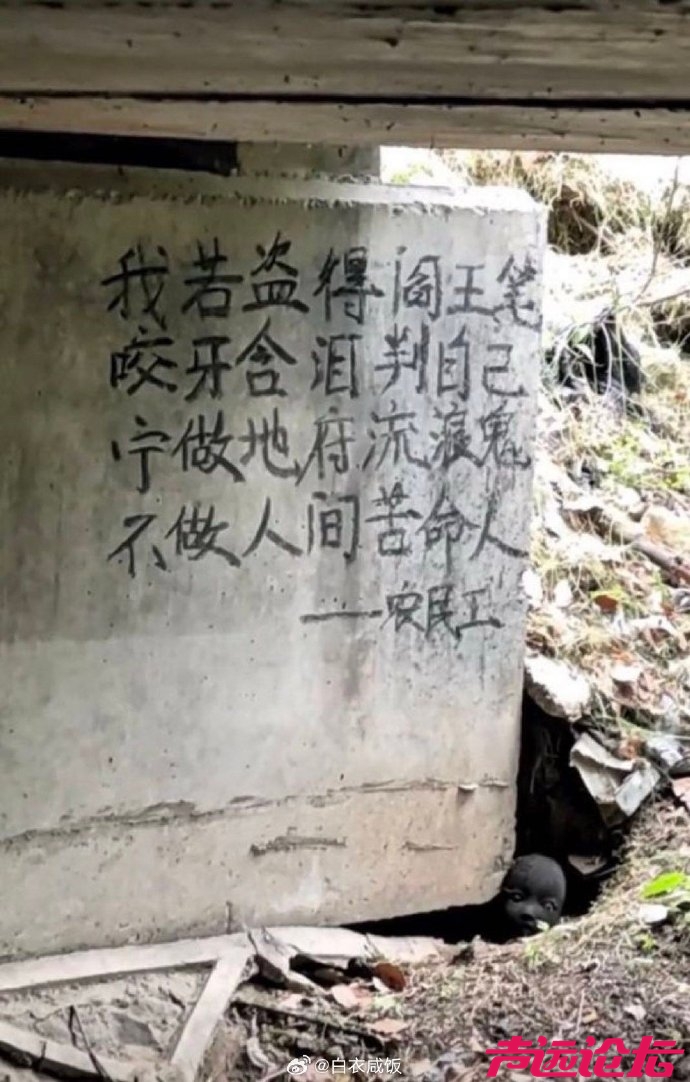 我若盗得阎王笔
咬牙含泪判自己
宁做地府流浪鬼
不做人间苦命人
——农民工
@白衣咸饭
声远论坛